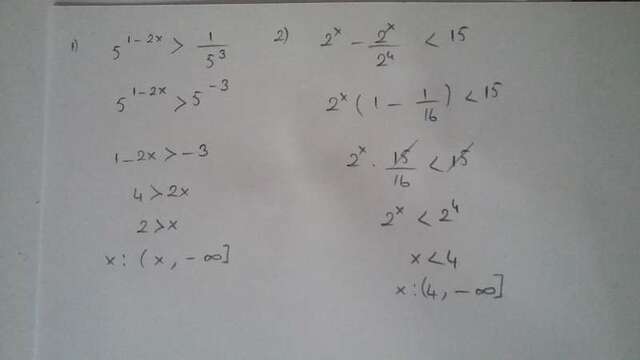 1) 5^{1-2x} > 1/5^3
5^{1-2x} > 5^{-3}
1-2x > -3
4 > 2x
2 > x
x: (x, -∞]
2) 2^x - 2^x/2^4 < 15
2^x (1 - 1/16) < 15
2^x · 15/16 < 15
2^x < 2^4
x < 4
x: (4, -∞]